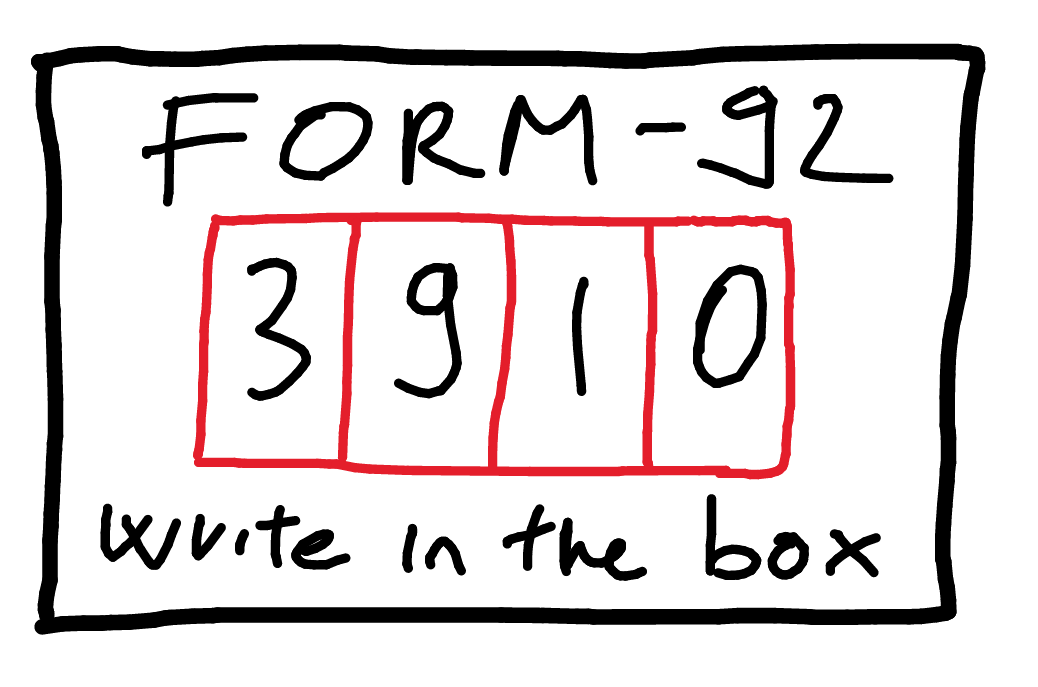 FORM-92
3910
write in the box